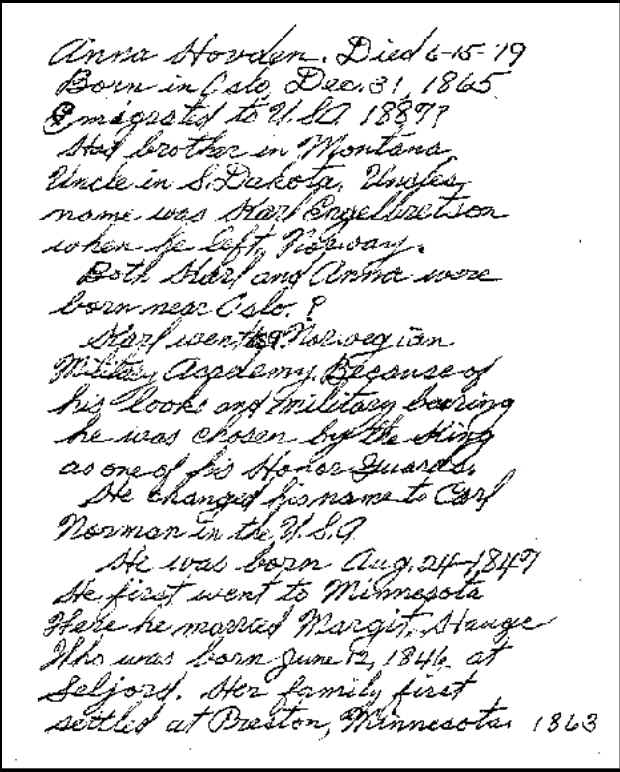 Anna Hovden. Died 6-15-'79
Born in Oslo, Dec. 31, 1865
Emigrated to U.S.A 1887?
Had brother in Montana,
Uncle in S. Dakota. Uncles
name was Karl Engelbretson
when he left Norway.
Both Karl and Anna were
born near Oslo. ?
Karl went to Norwegian
Military Academy. Because of
his looks and military bearing
he was chosen by the King
as one of his Honor Guards.
He changed his name to Carl
Norman in the U.S.A
He was born Aug. 24-1847
He first went to Minnesota
Here he married Margit Hauge
Who was born June 12, 1846 at
Seljord. Her family first
settled at Preston, Minnesota. 1863